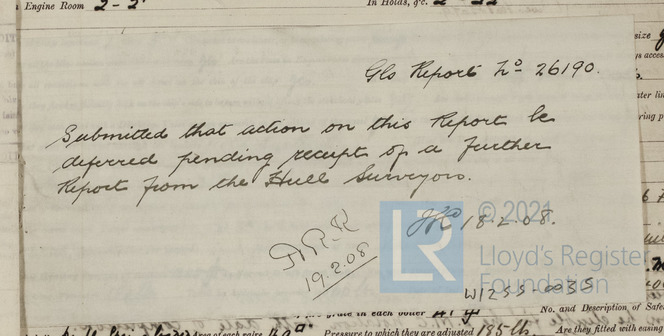 Engine Room 2-2
In Holds, &c. 2-
size
Gls Report No 26190.
Submitted that action on this Report be
deferred pending receipt of a further
Report from the Hull Surveyors.
18.2.08.
19.2.08
© 2021
LR
Lloyd's Register
Foundation
W1255-0035
grate in each boiler
No. and Description of Safe
Area of each valve
Pressure to which they are adjusted 185 lb
Are they fitted with easing